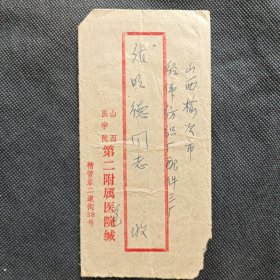 山西榆次市
经纬纺织厂配件三厂
张明德同志 收
山西
医学院
第二附属医院缄
精营东二道街38号